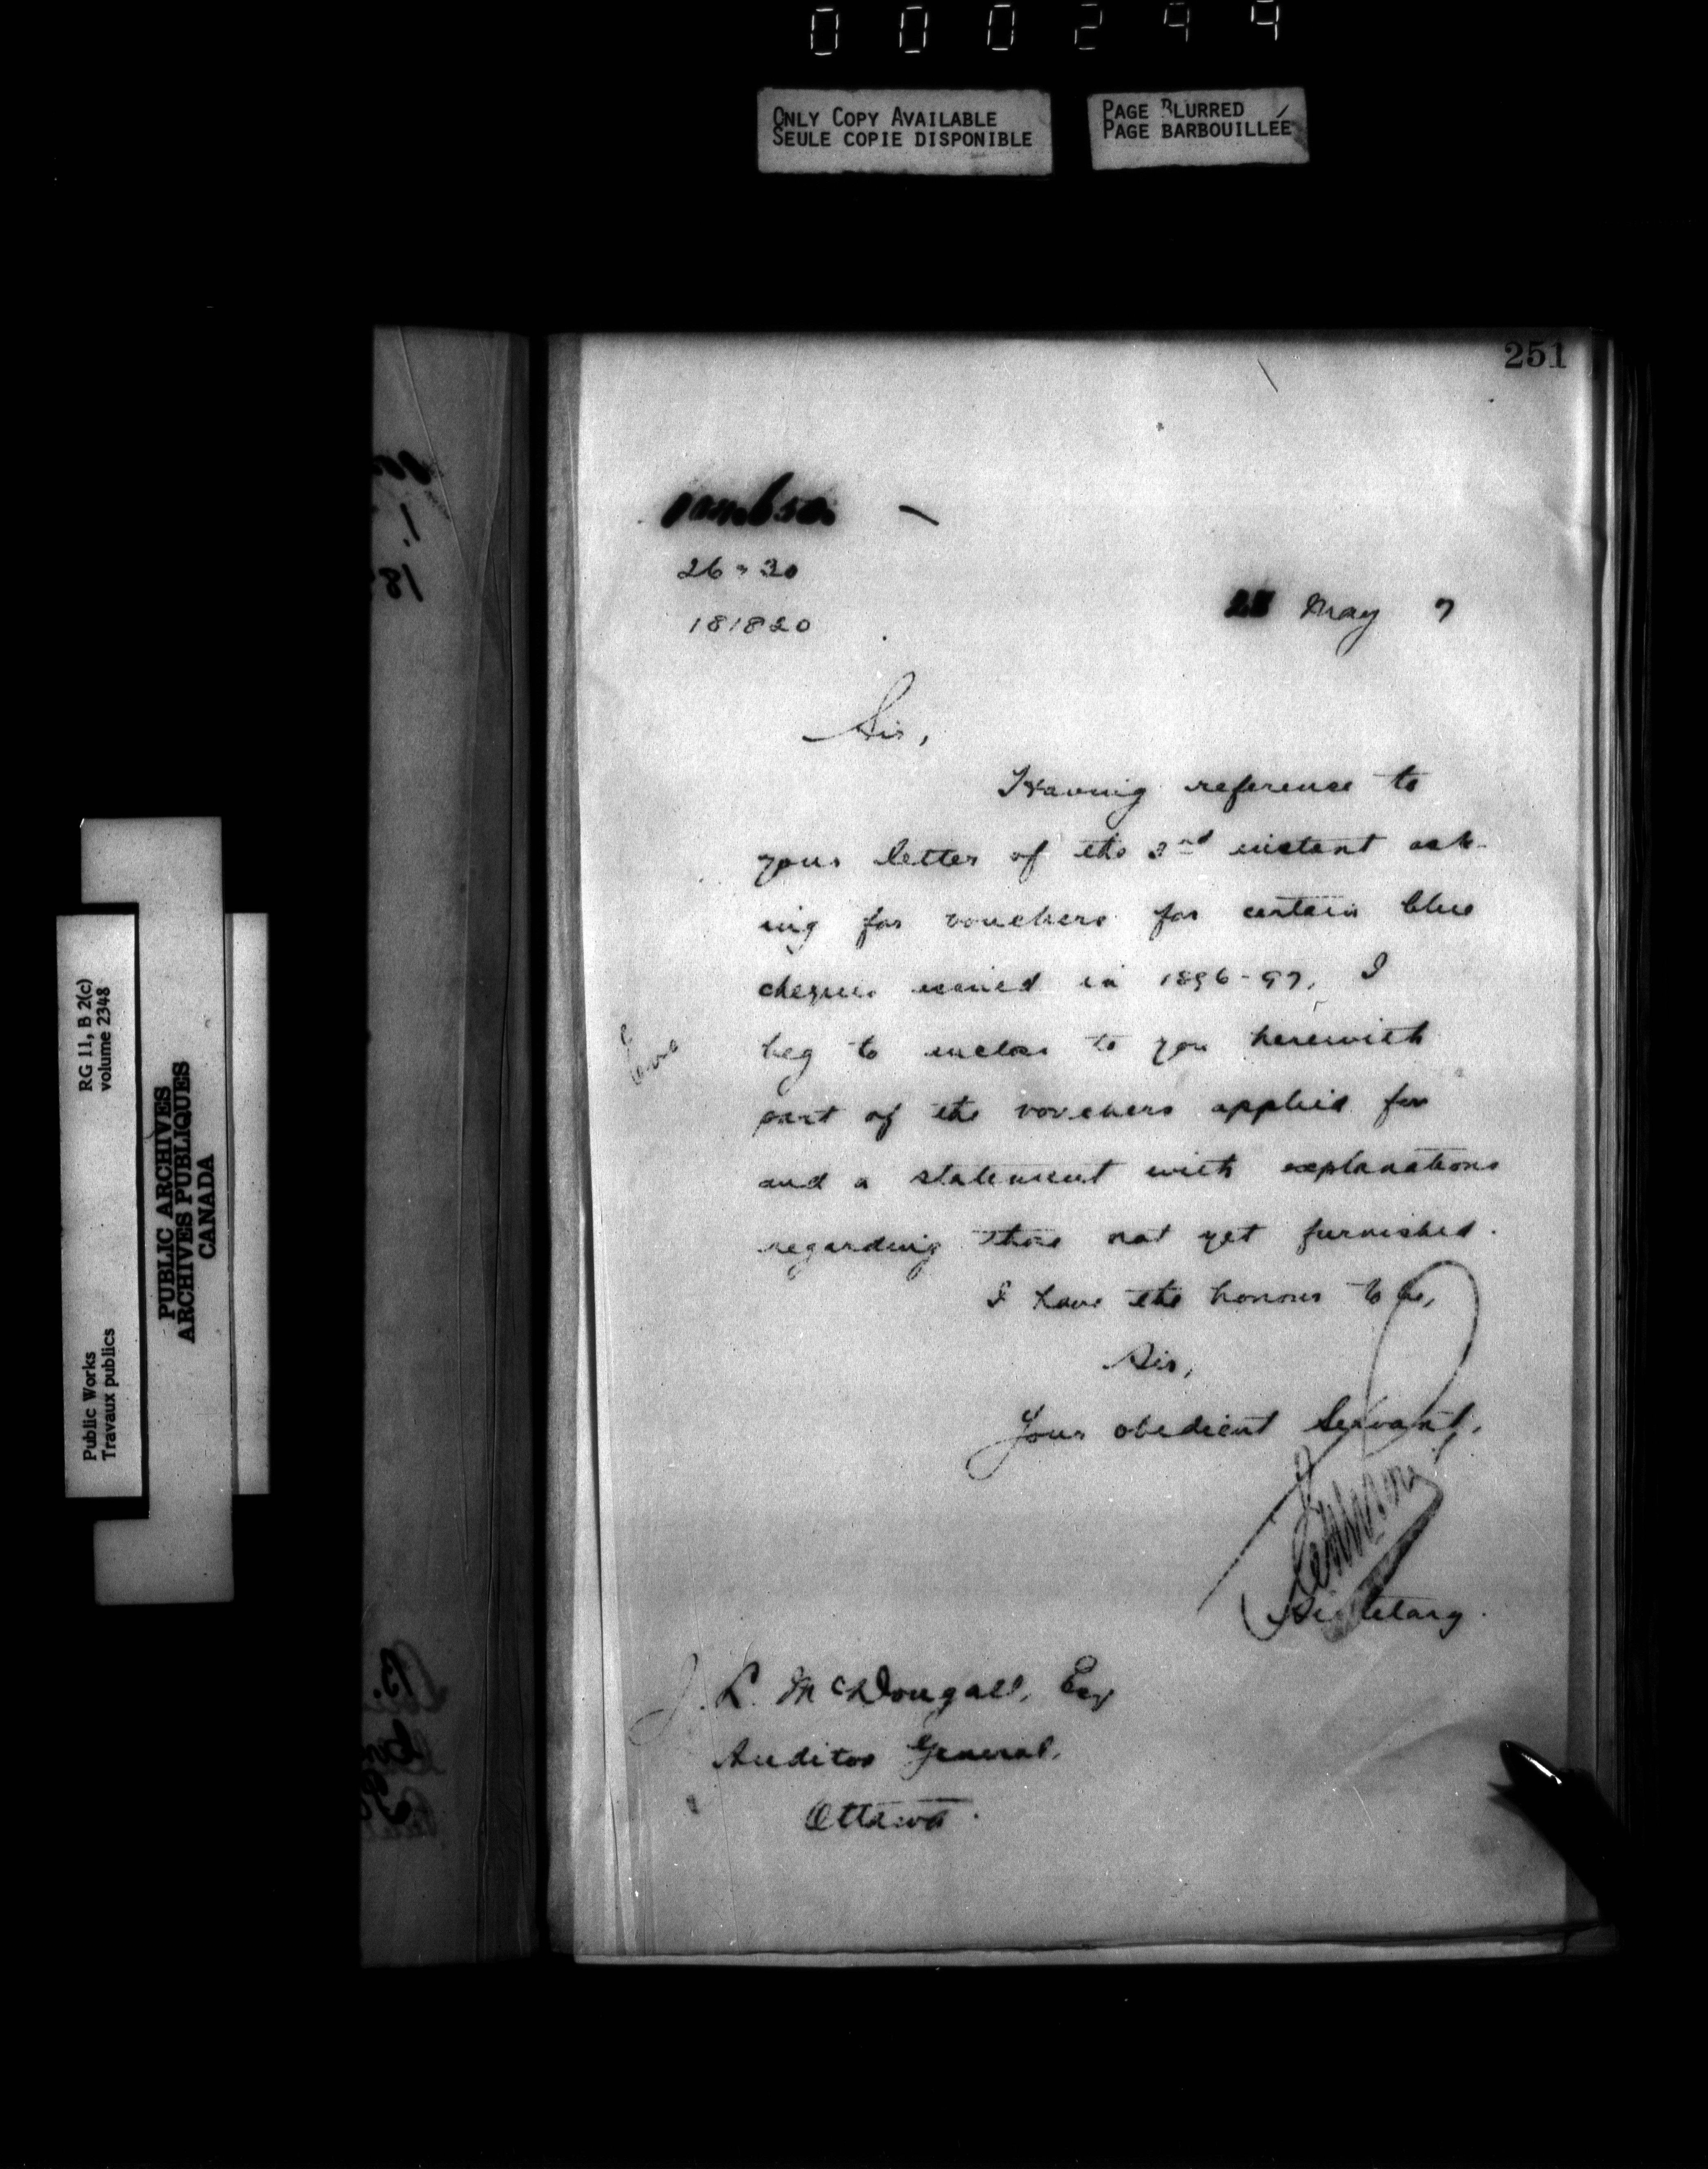 000299
ONLY COPY AVAILABLE
SEULE COPIE DISPONIBLE
PAGE BLURRED
PAGE BARBOUILLÉE
251
26 " 30
181820
May 7
Sir,
Having reference to
your letter of the 3rd instant ask-
ing for vouchers for certain blue
cheques issued in 1896-97, I
beg to enclose to you herewith
part of the vouchers applied for
and a statement with explanations
regarding those not yet furnished.
I have the honour to be,
Sir,
Your obedient Servant,
Secretary.
J. L. McDougall, Esq
Auditor General,
Ottawa.
RG 11, B 2(c)
volume 2348
Public Works
Travaux publics
PUBLIC ARCHIVES
ARCHIVES PUBLIQUES
CANADA